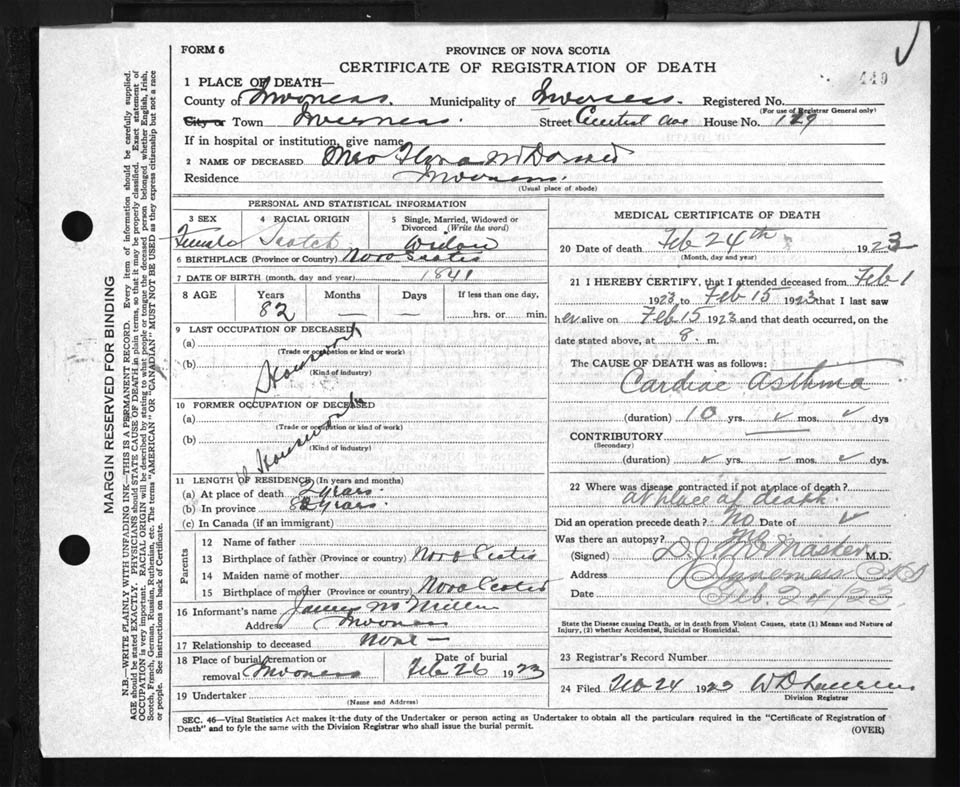 FORM 6
PROVINCE OF NOVA SCOTIA
CERTIFICATE OF REGISTRATION OF DEATH
449
1 PLACE OF DEATH—
County of Inverness. Municipality of Inverness. Registered No.
(For use of Registrar General only)
City or Town Inverness. Street Central Ave House No. 129
If in hospital or institution, give name
2 NAME OF DECEASED Mrs Flora McDonald
Residence Inverness.
(Usual place of abode)
PERSONAL AND STATISTICAL INFORMATION
3 SEX Female
4 RACIAL ORIGIN Scotch
5 Single, Married, Widowed or Divorced (Write the word) Widow
6 BIRTHPLACE (Province or Country) Nova Scotia
7 DATE OF BIRTH (month, day and year) 1841
8 AGE Years Months Days If less than one day,
82 — — hrs. or min.
9 LAST OCCUPATION OF DECEASED
(a)
(Trade or occupation or kind or work)
(b)
(Kind of industry)
Housework
10 FORMER OCCUPATION OF DECEASED
(a)
(Trade or occupation or kind of work)
(b)
(Kind of industry)
Housework
11 LENGTH OF RESIDENCE (In years and months)
(a) At place of death 2 years.
(b) In province 82 years.
(c) In Canada (if an immigrant)
Parents
12 Name of father
13 Birthplace of father (Province or country) Nova Scotia
14 Maiden name of mother
15 Birthplace of mother (Province or country) Nova Scotia
16 Informant's name James
Address Inverness
17 Relationship to deceased None —
18 Place of burial, cremation or removal Inverness Date of burial Feb 26 1923
19 Undertaker
(Name and Address)
MEDICAL CERTIFICATE OF DEATH
20 Date of death Feb 24th 1923
(Month, day and year)
21 I HEREBY CERTIFY, that I attended deceased from Feb 1
1923 to Feb 15 1923 that I last saw
her alive on Feb 15 1923 and that death occurred, on the
date stated above, at 8. m.
The CAUSE OF DEATH was as follows:
Cardiac Asthma
(duration) 10 yrs. mos. dys
CONTRIBUTORY
(Secondary)
(duration) yrs. mos. dys.
22 Where was disease contracted if not at place of death?
at place of death.
Did an operation precede death? No Date of
Was there an autopsy? No
(Signed) McMaster M.D.
Address Inverness NS
Date Feb. 24/23.
State the Disease causing Death, or in death from Violent Causes, state (1) Means and Nature of
Injury, (2) whether Accidental, Suicidal or Homicidal.
23 Registrar's Record Number
24 Filed Feb 24 1923
Division Registrar
SEC. 46—Vital Statistics Act makes it the duty of the Undertaker or person acting as Undertaker to obtain all the particulars required in the "Certificate of Registration of
Death" and to fyle the same with the Division Registrar who shall issue the burial permit.
(OVER)
MARGIN RESERVED FOR BINDING
N.B.—WRITE PLAINLY WITH UNFADING INK—THIS IS A PERMANENT RECORD. Every item of information should be carefully supplied.
AGE should be stated EXACTLY. PHYSICIANS should STATE CAUSE OF DEATH in plain terms, so that it may be properly classified. Exact statement of
OCCUPATION is very important. RACIAL ORIGIN will be described by stating to what people or tongue the deceased person belonged whether English, Irish,
Scotch, French, German, Russian, Ruthenian, etc. The terms "AMERICAN" OR "CANADIAN" MUST NOT BE USED as they express citizenship but not a race
or people. See instructions on back of Certificate.